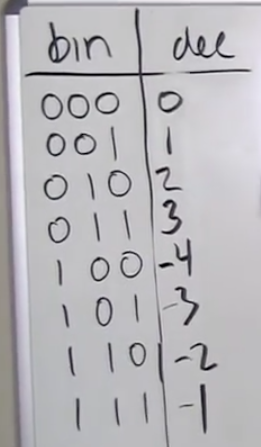 bin dec
000 0
001 1
010 2
011 3
100 -4
101 -3
110 -2
111 -1